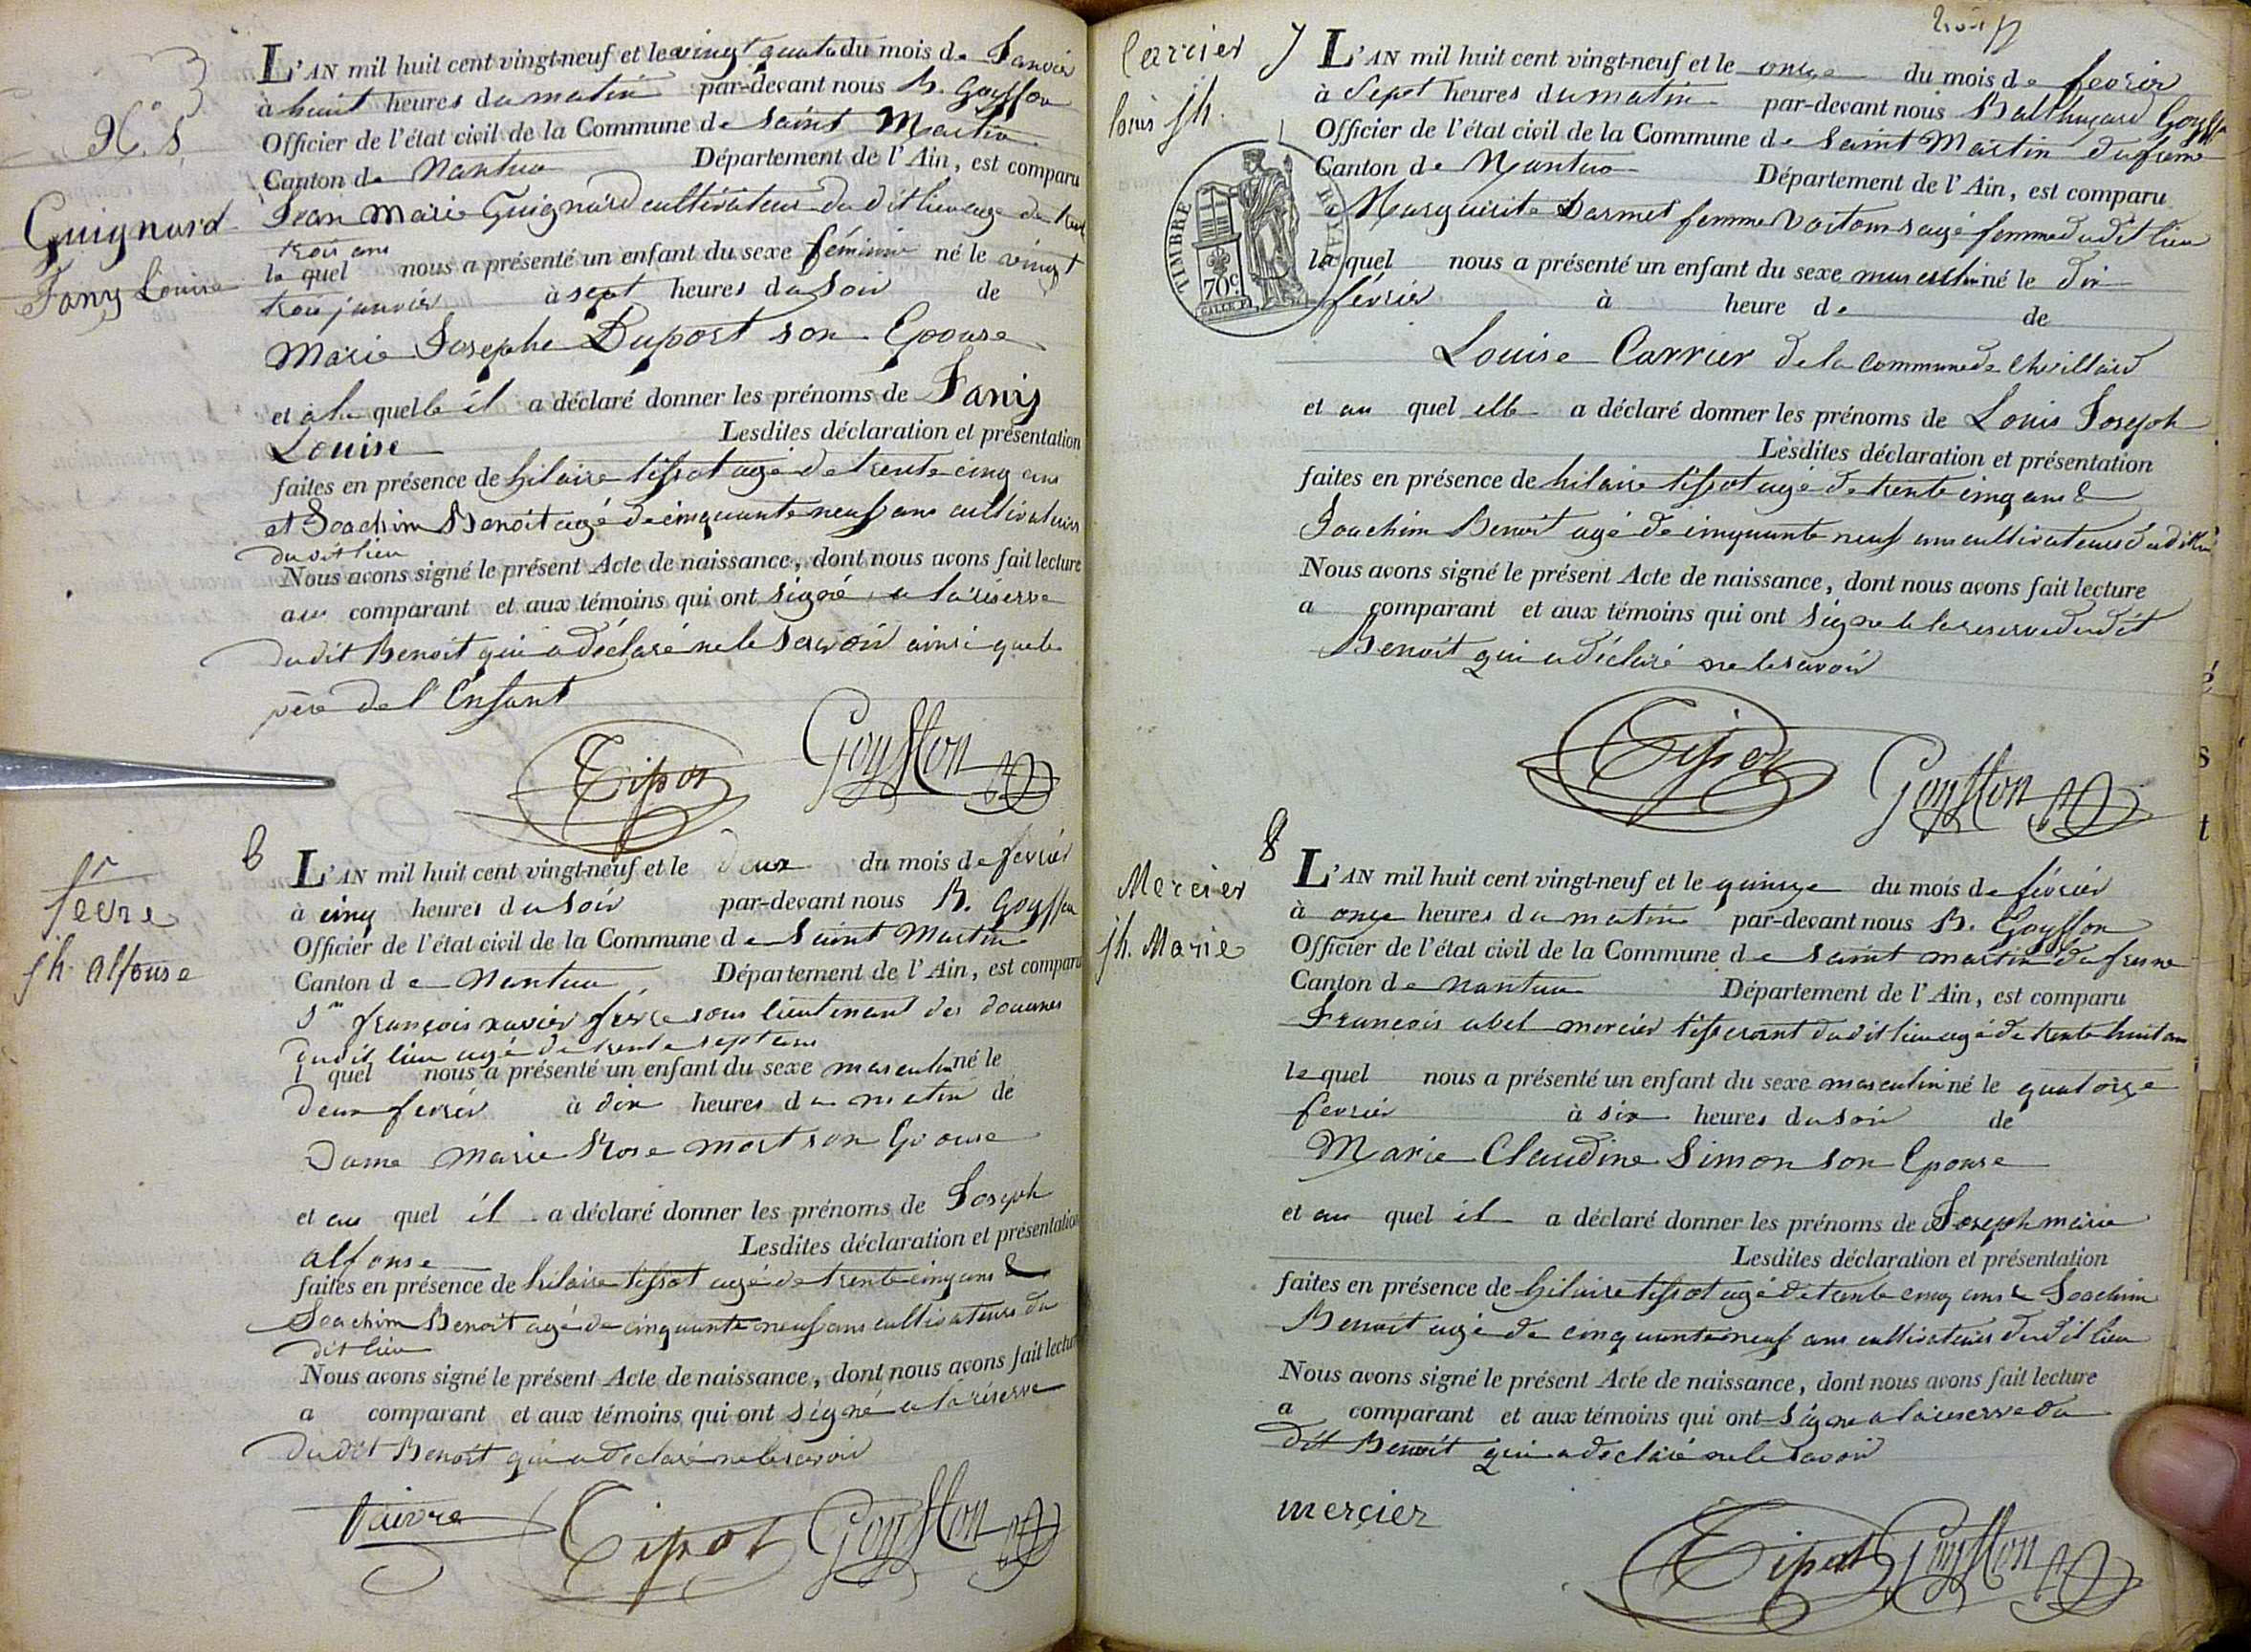 N.° 5
Guignard
Fany Louise
L'AN mil huit cent vingt-neuf et le vingt quatre du mois de Janvier
à huit heures du matin par-devant nous B. Goyffon
Officier de l'état civil de la Commune de Saint Martin
Canton de Nantua Département de l'Ain, est comparu
Jean Marie Guignard cultivateur du dit lieu agé de trente
trois ans
le quel nous a présenté un enfant du sexe féminin né le vingt
trois janvier à sept heures du Soir de
Marie Josephe Duport son Epouse
et à la quelle il a déclaré donner les prénoms de Fany
Louise Lesdites déclaration et présentation
faites en présence de hilaire tissot agé de trente cinq ans
et Joachim Benoit agé de cinquante neuf ans cultivateurs
du dit lieu
Nous avons signé le présent Acte de naissance, dont nous avons fait lecture
au comparant et aux témoins qui ont signé a la réserve
du dit Benoit qui a déclaré ne le savoir ainsi que le
père de l'Enfant
Tissot Goyffon
6
fèvre
jh. alfonse
L'AN mil huit cent vingt-neuf et le deux du mois de fevrier
à cinq heures du Soir par-devant nous B. Goyffon
Officier de l'état civil de la Commune de Saint Martin
Canton de Nantua Département de l'Ain, est comparu
Sr françois xavier fèvre sous lieutenant des douanes
du dit lieu agé de trente sept ans
l quel nous a présenté un enfant du sexe masculin né le
deux fevrier à dix heures du matin de
Dame Marie Rose mort son Epouse
et au quel il a déclaré donner les prénoms de Joseph
alfonse Lesdites déclaration et présentation
faites en présence de hilaire tissot agé de trente cinq ans &
Joachim Benoit agé de cinquante neuf ans cultivateurs du
dit lieu
Nous avons signé le présent Acte de naissance, dont nous avons fait lecture
a comparant et aux témoins qui ont signé a la réserve
du dit Benoit qui a déclaré ne le savoir
faivre Tissot Goyffon
Carrier 7
louis jh.
TIMBRE ROYAL
70c
L'AN mil huit cent vingt-neuf et le onze du mois de fevrier
à Sept heures du matin par-devant nous Balthazard Goyffon
Officier de l'état civil de la Commune de Saint Martin du frene
Canton de Nantua Département de l'Ain, est comparu
Marguerite Darmet femme sage femme du dit lieu
la quel nous a présenté un enfant du sexe masculin né le dix
février à heure de de
Louise Carrier de la commune de Chevillard
et au quel elle a déclaré donner les prénoms de Louis Joseph
Lesdites déclaration et présentation
faites en présence de hilaire tissot agé de trente cinq ans &
Joachim Benoit agé de cinquante neuf ans cultivateurs du dit lieu
Nous avons signé le présent Acte de naissance, dont nous avons fait lecture
a comparant et aux témoins qui ont signé a la reserve du dit
Benoit qui a déclaré ne le savoir
Tissot Goyffon
8
Mercier
jh. Marie
L'AN mil huit cent vingt-neuf et le quinze du mois de février
à onze heures du matin par-devant nous B. Goyffon
Officier de l'état civil de la Commune de Saint martin du fresne
Canton de nantua Département de l'Ain, est comparu
François abel mercier tisserant du dit lieu agé de trente huit ans
le quel nous a présenté un enfant du sexe masculin né le quatorze
fevrier à six heures du soir de
Marie Claudine Simon son Epouse
et au quel il a déclaré donner les prénoms de Joseph marie
Lesdites déclaration et présentation
faites en présence de hilaire tissot agé de trente cinq ans & Joachim
Benoit agé de cinquante neuf ans cultivateurs du dit lieu
Nous avons signé le présent Acte de naissance, dont nous avons fait lecture
a comparant et aux témoins qui ont signé a la reserve du
dit Benoit qui a déclaré ne le savoir
mercier
Tissot Goyffon